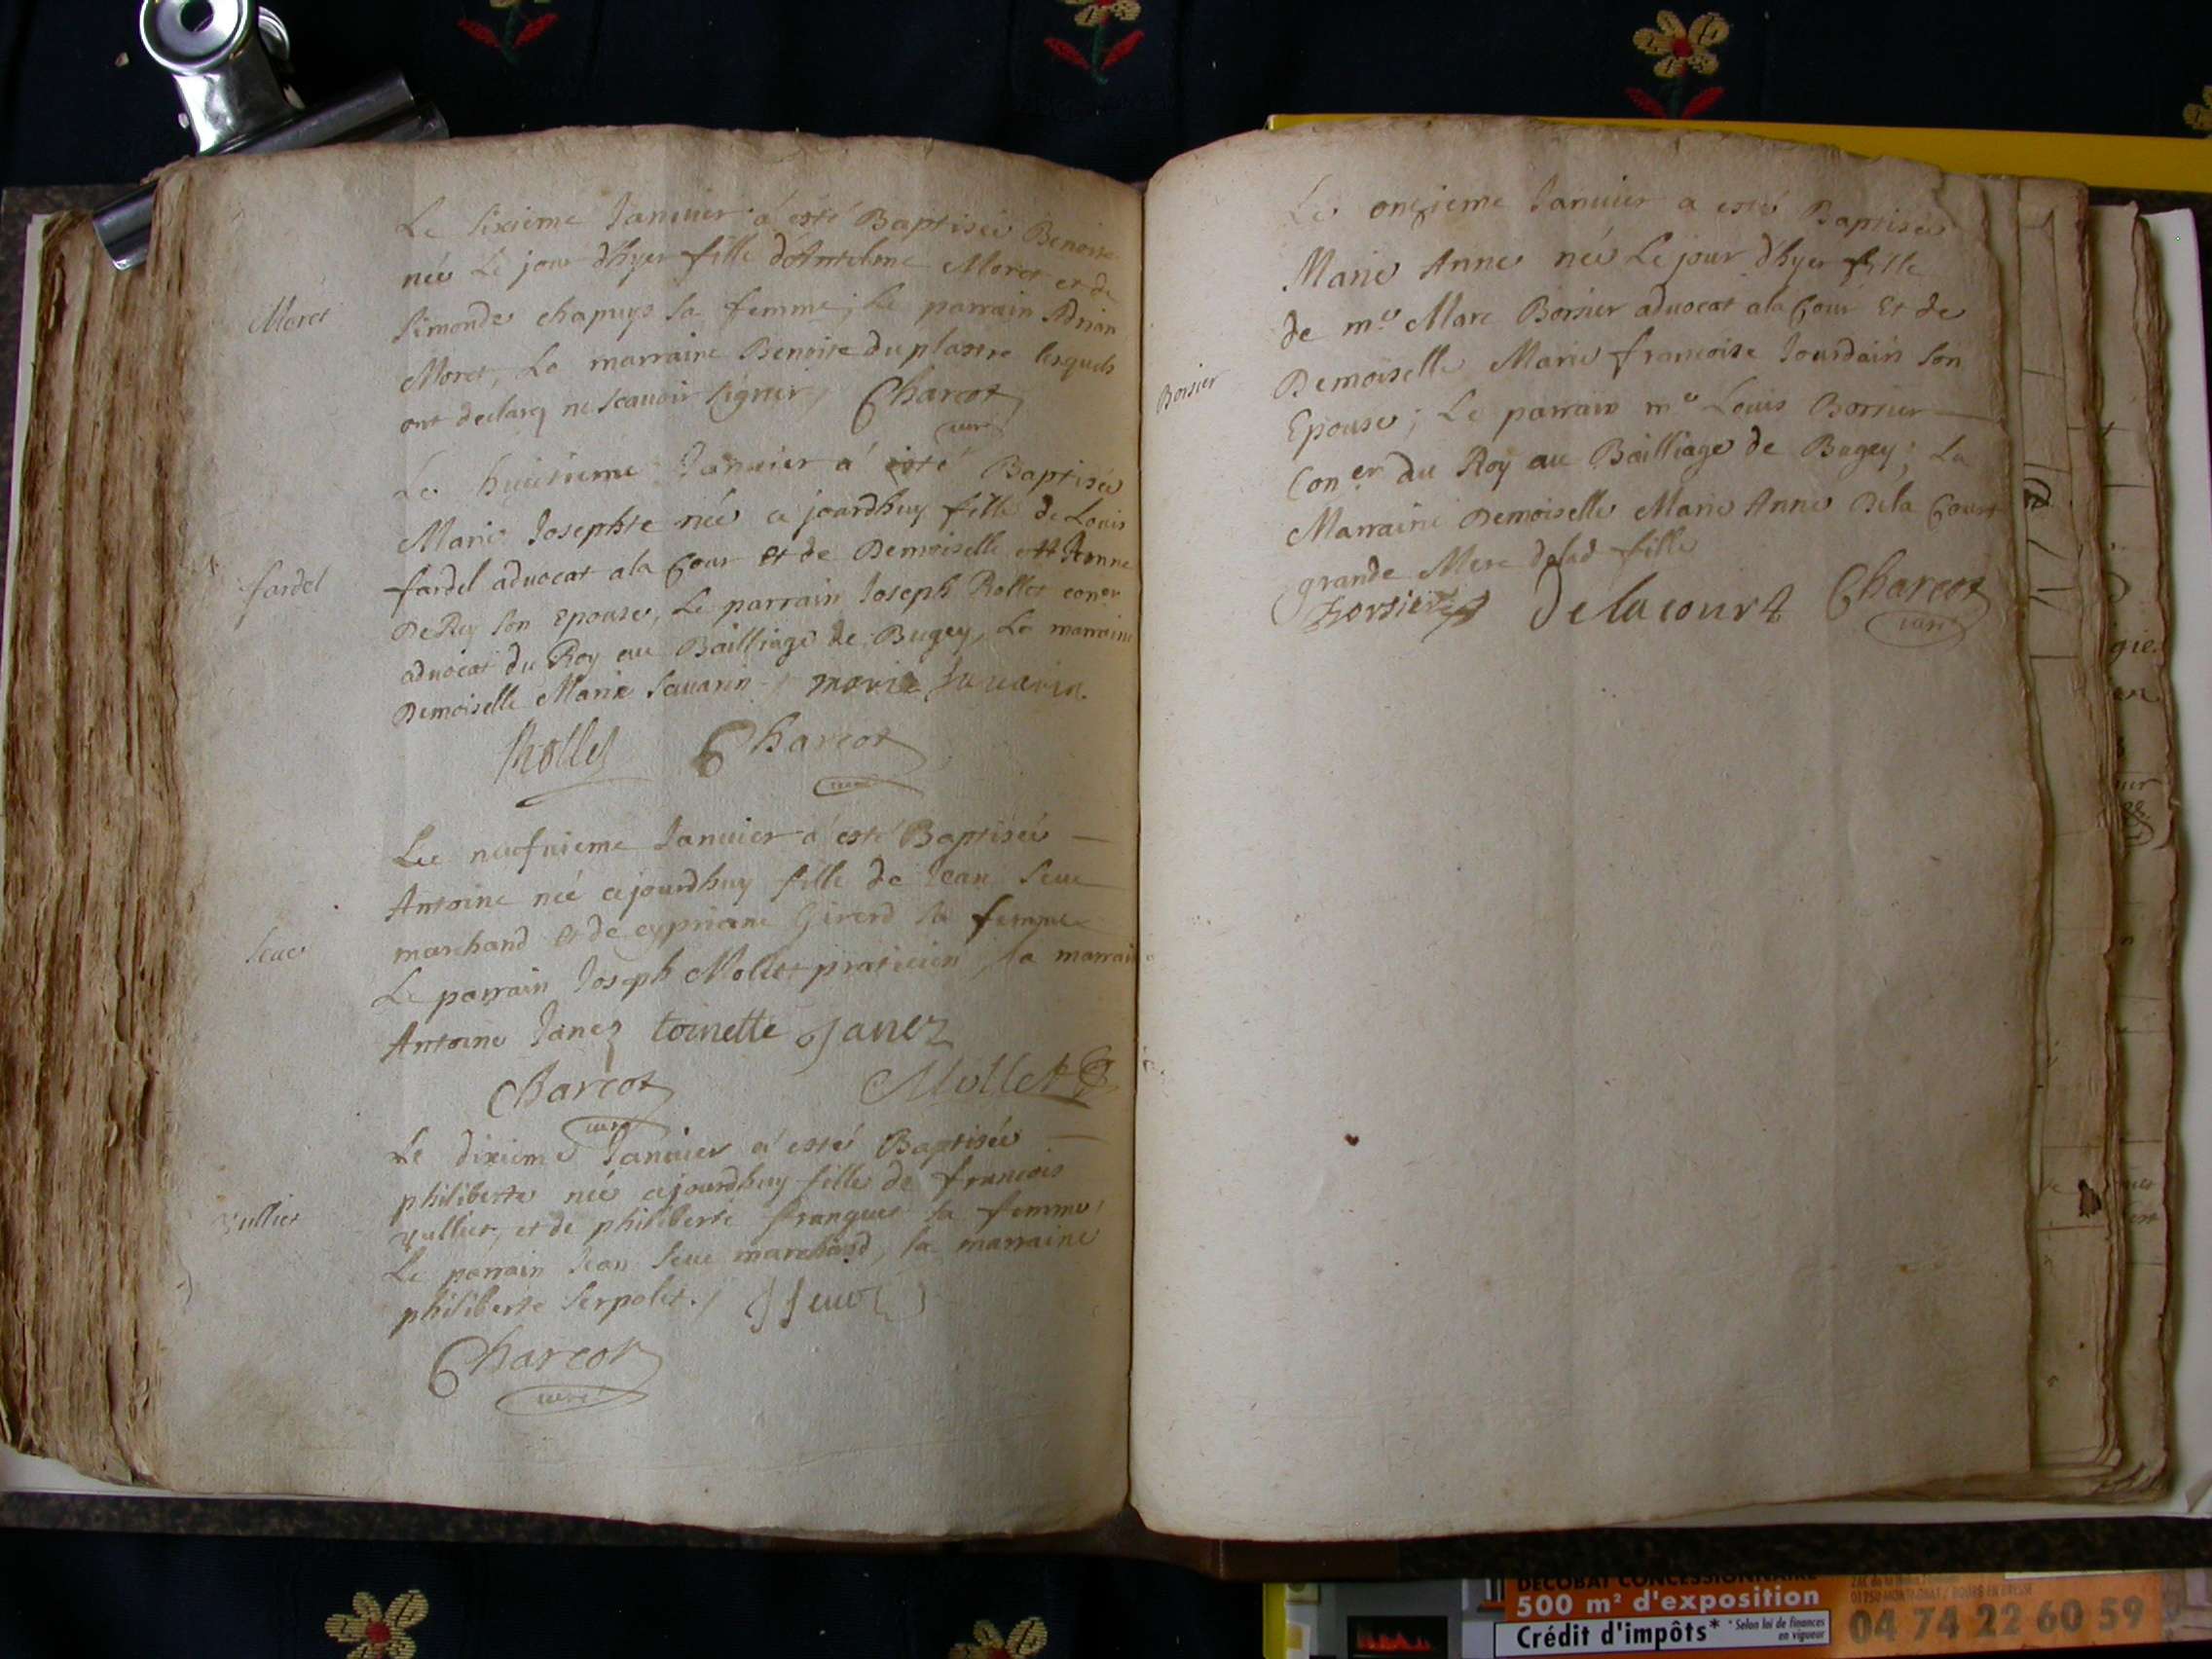 Le sixieme Januier a esté Baptisée Benoite
née Le jour d'hyer fille d'Antelme Moret et de
Moret
Simonde chapuys sa femme; Le parrain Adrian
Moret, La marraine Benoite duplastre lesquels
ont declaré ne scauoir signer, Charcot
curé
Le huictieme Januier a esté Baptisée
Marie Josephte née ce jourdhuy fille de Louis
fardel
fardel aduocat a la Cour et de Demoiselle Jeanne
De Rey son Epouse, Le parrain Joseph Rollet coner
aduocat du Roy au Bailliage de Bugey, La marraine
Demoiselle Marie Sauarin. marie sauarin.
Rollet Charcot
curé
Le neufuieme Januier a esté Baptisée
Antoine née ce jourdhuy fille de Jean Seue
Seue
marchand et de cypriane Girerd sa femme
Le parrain Joseph Mollet praticien, la marraine
Antoine Janez toinette Janez
Charcot Mollet
curé
Le dixieme Januier a esté Baptisée
philiberte née ce jourdhuy fille de francois
Vullier
Vullier, et de philiberte franquet sa femme,
Le parrain Jean Seue marchand, la marraine
philiberte Serpolet. J Seuoz
Charcot
curé
Le onzieme Januier a esté Baptisée
Marie Anne née Le jour d'hyer fille
de me Marc Borsier aduocat a la Cour Et de
Borsier
Demoiselle Marie francoise Jourdain son
Epouse; Le parrain me Louis Borsier
Coner du Roy au Bailliage de Bugey; La
Marraine Demoiselle Marie Anne De la Court
grande Mere de lad fille
Borsier Delacourt Charcot
curé
DECOBAT CONCESSIONNAIRE
500 m² d'exposition
Crédit d'impôts* *Selon loi de finances
en vigueur
04 74 22 60 59